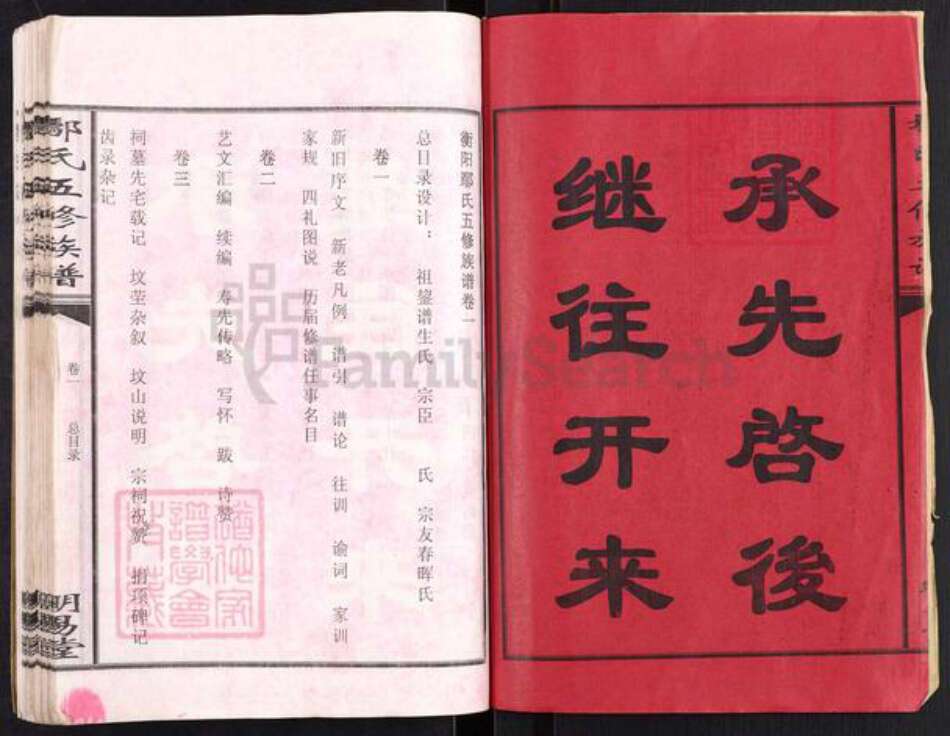 承先啓後
继往开来
衡阳鄢氏五修族谱卷一
总目录设计： 祖鋆谱生氏 宗臣 氏 宗友春晖氏
卷一
新旧序文 新老凡例 谱引 谱论 往训 谕词 家训
家规 四礼图说 历届修谱任事名目
卷二
艺文汇编 续编 寿先传略 写怀 跋 诗赞
卷三
祠墓先宅载记 坟茔杂叙 坟山说明 宗祠祝赞 捐琢碑记
齿录杂记
鄢氏五修族谱
卷一
总目录
明易堂
FamilySearch